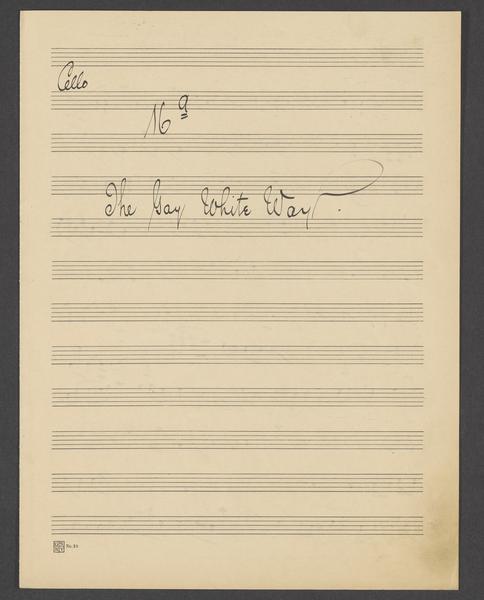 Cello
16a
The Gay White Way.
No. 15